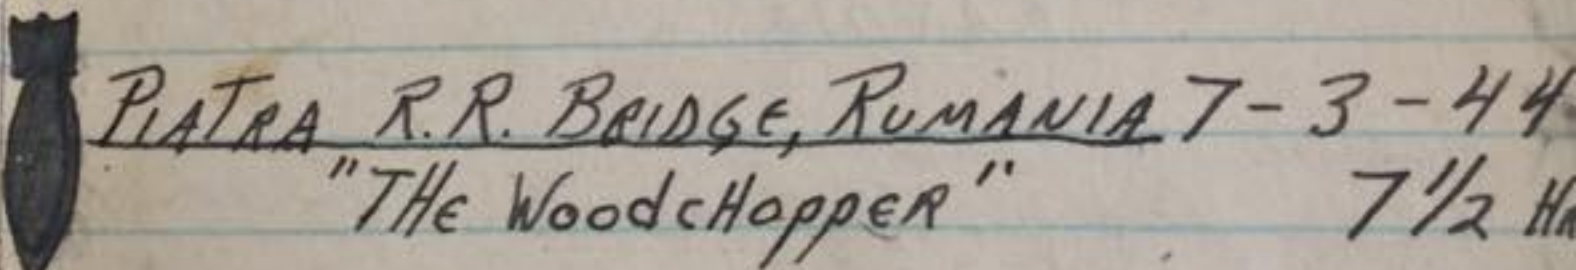 PIATRA R.R. BRIDGE, RUMANIA 7-3-44
"THE WOODCHOPPER" 7 1/2 HR